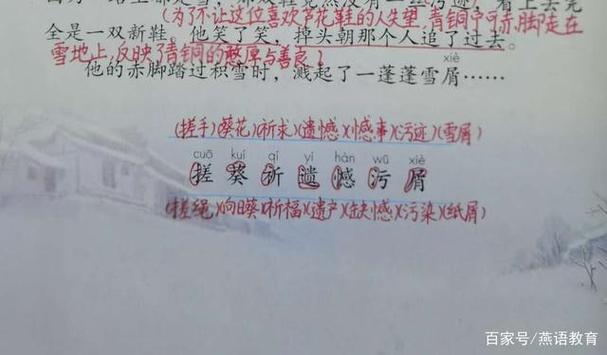 一路上都是雪，那双鞋竟然没有一丝污迹，看上去完
(为了不让这位喜欢芦花鞋的人失望,青铜宁可赤脚走在
全是一双新鞋。他笑了笑，掉头朝那个人追了过去。
雪地上,反映了青铜的憨厚与善良)
xiè
他的赤脚踏过积雪时，溅起了一蓬蓬雪屑……
(搓手)(葵花)(祈求)(遗憾)(憾事)(污迹)(雪屑)
cuō kuí qí yí hàn wū xiè
搓 葵 祈 遗 憾 污 屑
(搓绳)(向日葵)(祈福)(遗产)(缺憾)(污染)(纸屑)
百家号/燕语教育